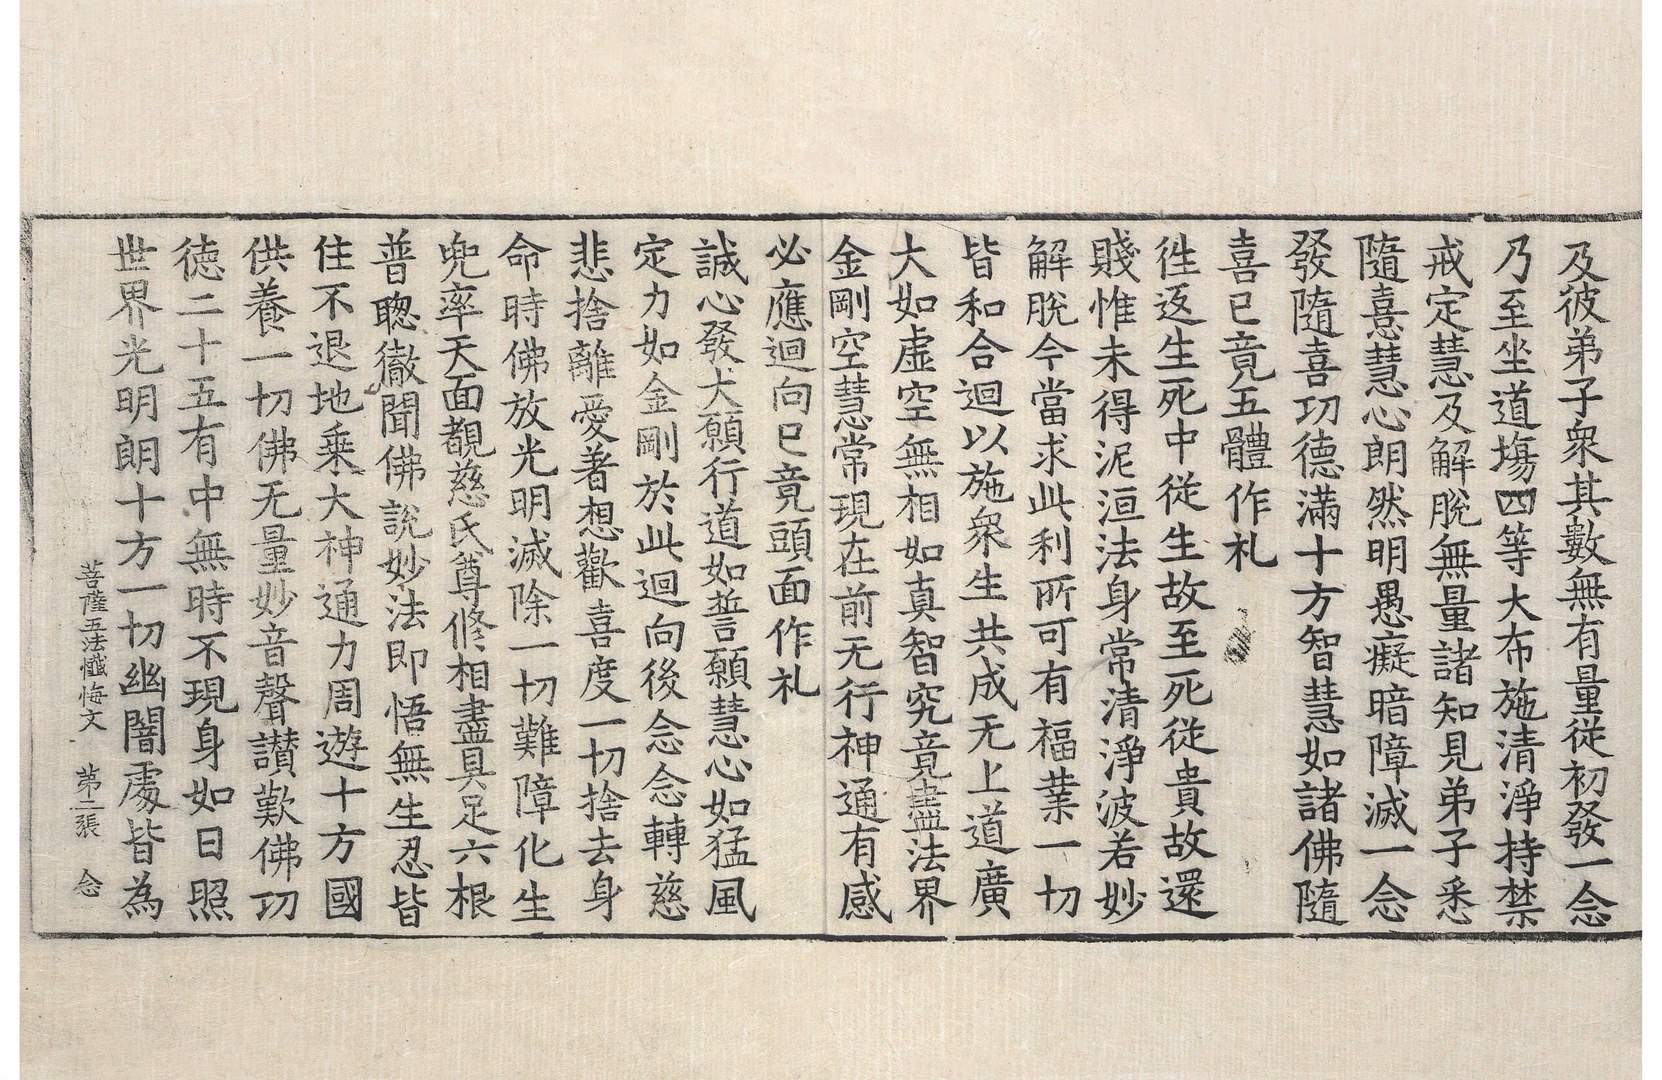 及彼弟子衆其數無有量從初發一念
乃至坐道塲四等大布施清淨持禁
戒定慧及解脫無量諸知見弟子悉
隨憙慧心朗然明愚癡暗障滅一念
發隨喜功德滿十方智慧如諸佛隨
喜已竟五體作礼
徃返生死中從生故至死從貴故還
賤惟未得泥洹法身常清淨波若妙
解脫今當求此利所可有福業一切
皆和合迴以施衆生共成无上道廣
大如虛空無相如真智究竟盡法界
金剛空慧常現在前无行神通有感
必應迴向已竟頭面作礼
誠心發大願行道如誓願慧心如猛風
定力如金剛於此迴向後念念轉慈
悲捨離愛著想歡喜度一切捨去身
命時佛放光明滅除一切難障化生
兜率天面覩慈氏尊修相盡具足六根
普聰徹聞佛說妙法即悟無生忍皆
住不退地乗大神通力周遊十方國
供養一切佛无量妙音聲讃歎佛功
徳二十五有中無時不現身如日照
世界光明朗十方一切幽闇處皆為
菩薩五法懺悔文 第二張 念